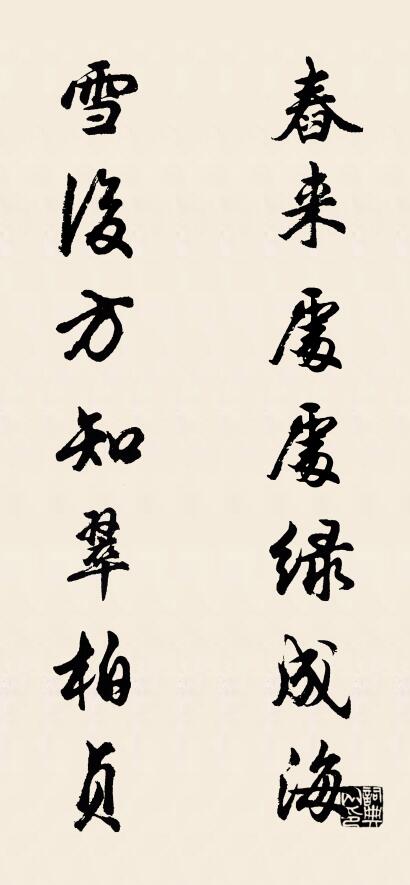 春来處處绿成海
雪後方知翠柏貞